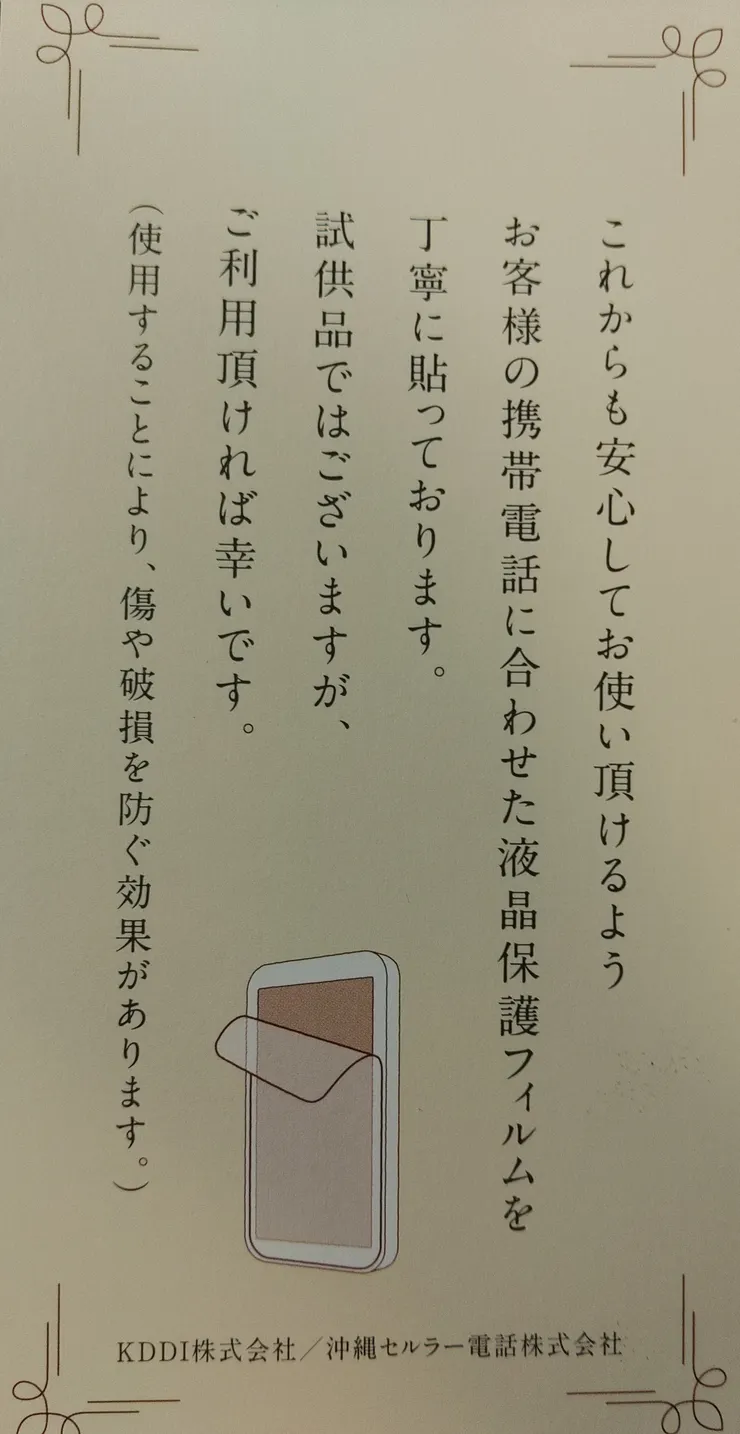 これからも安心してお使い頂けるよう
お客様の携帯電話に合わせた液晶保護フィルムを
丁寧に貼っております。
試供品ではございますが、
ご利用頂ければ幸いです。
（使用することにより、傷や破損を防ぐ効果があります。）
KDDI株式会社／沖縄セルラー電話株式会社